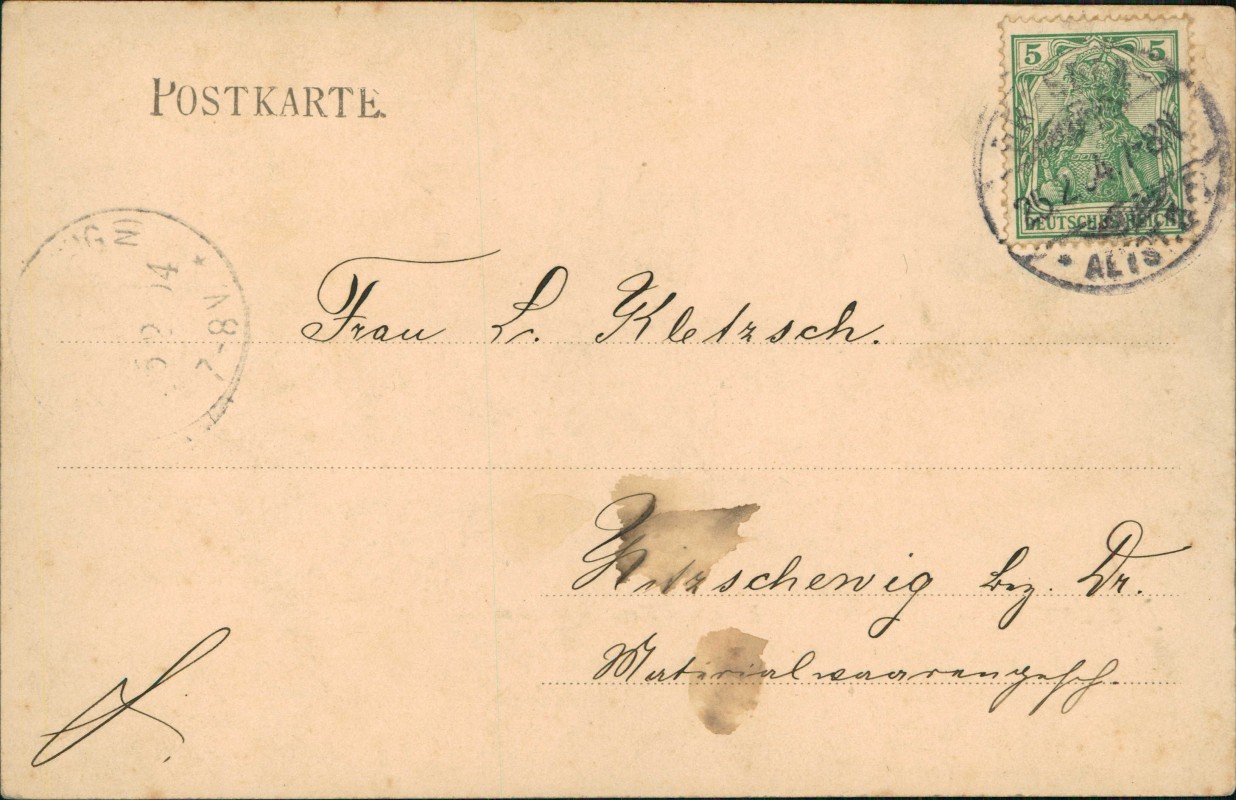 POSTKARTE.
5 5
DEUTSCHES REICH
7-8N
* ALTST
* 7-8V
Frau L. Kletzsch.
Kötzschenwig bez. Dr.
Materialwaarengesch.